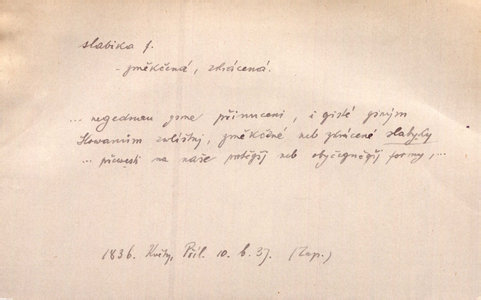 slabika f.
- změkčená, zkrácená.
... negednau gsme přinuceni, i gisté giným
Slowanům zwlásstnj, změkčené neb zkrácené slabyky
... přiwesti na naše potěgssj neb obyčegněgssj formy, ...
1836. Květy, Příl. 10. b. 37. (Zap.)